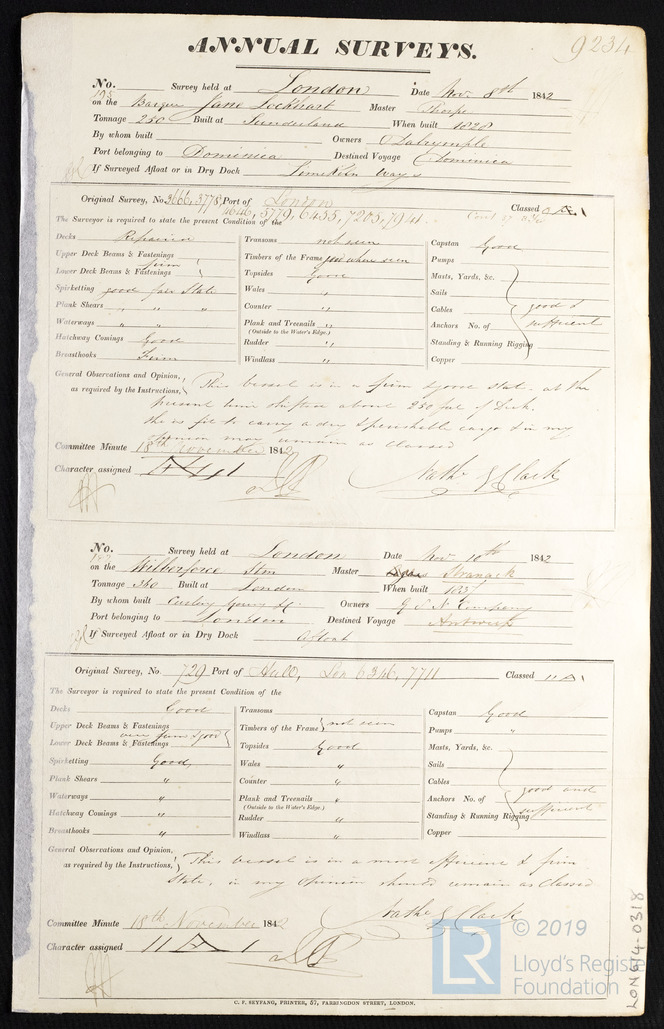 ANNUAL SURVEYS.
9234
No. Survey held at London Date Nov. 8th 1842
on the Barque Jane Lockhart Master Thorpe
Tonnage 250 Built at Sunderland When built 1828
By whom built Owners Dalrymple
Port belonging to Dominica Destined Voyage Dominica
If Surveyed Afloat or in Dry Dock Limekiln Ways
Original Survey, No. 3666, 3778, Port of London
4646, 5779, 6435, 7205, 7941 Classed Æ 1
The Surveyor is required to state the present Condition of the
Decks Repaired
Upper Deck Beams & Fastenings
firm
Lower Deck Beams & Fastenings
Spirketting good fair State
Plank Shears " " "
Waterways " "
Hatchway Comings Good
Breasthooks Firm
Transoms not seen
Timbers of the Frame good where seen
Topsides Good
Wales "
Counter "
Plank and Treenails "
(Outside to the Water's Edge.)
Rudder "
Windlass "
Capstan Good
Pumps
Masts, Yards, &c.
Sails
Cables good &
Anchors No. of sufficient
Standing & Running Rigging
Copper
General Observations and Opinion, This vessel is in a firm & good state at the
as required by the Instructions, present time shifted about 250 feet of Deck.
She is fit to carry a dry & perishable cargo & in my
opinion may remain as Classed
Committee Minute 18th November 1842
Character assigned Æ 1
Nathl G Clark
No. Survey held at London Date Nov. 10th 1842
on the Wilberforce Stm Master Stranack
Tonnage 360 Built at London When built 1837
By whom built Curling Young & Co. Owners G S N Company
Port belonging to London Destined Voyage Antwerp
If Surveyed Afloat or in Dry Dock Afloat
Original Survey, No. 729 Port of Hull, Lon 6346, 7711 Classed 11 A 1
The Surveyor is required to state the present Condition of the
Decks Good
Upper Deck Beams & Fastenings
very firm & good
Lower Deck Beams & Fastenings
Spirketting Good
Plank Shears "
Waterways "
Hatchway Comings "
Breasthooks "
Transoms
Timbers of the Frame not seen
Topsides Good
Wales "
Counter "
Plank and Treenails "
(Outside to the Water's Edge.)
Rudder "
Windlass "
Capstan Good
Pumps "
Masts, Yards, &c.
Sails
Cables good and
Anchors No. of sufficient
Standing & Running Rigging
Copper
General Observations and Opinion, This vessel is in a most efficient & firm
as required by the Instructions, State, in my opinion should remain as Classed
Nathl G Clark
Committee Minute 18th November 1842
Character assigned 11 A 1
C. F. SEYFANG, PRINTER, 57, FARRINGDON STREET, LONDON.
LON614-0318
LR © 2019
Lloyd's Register
Foundation